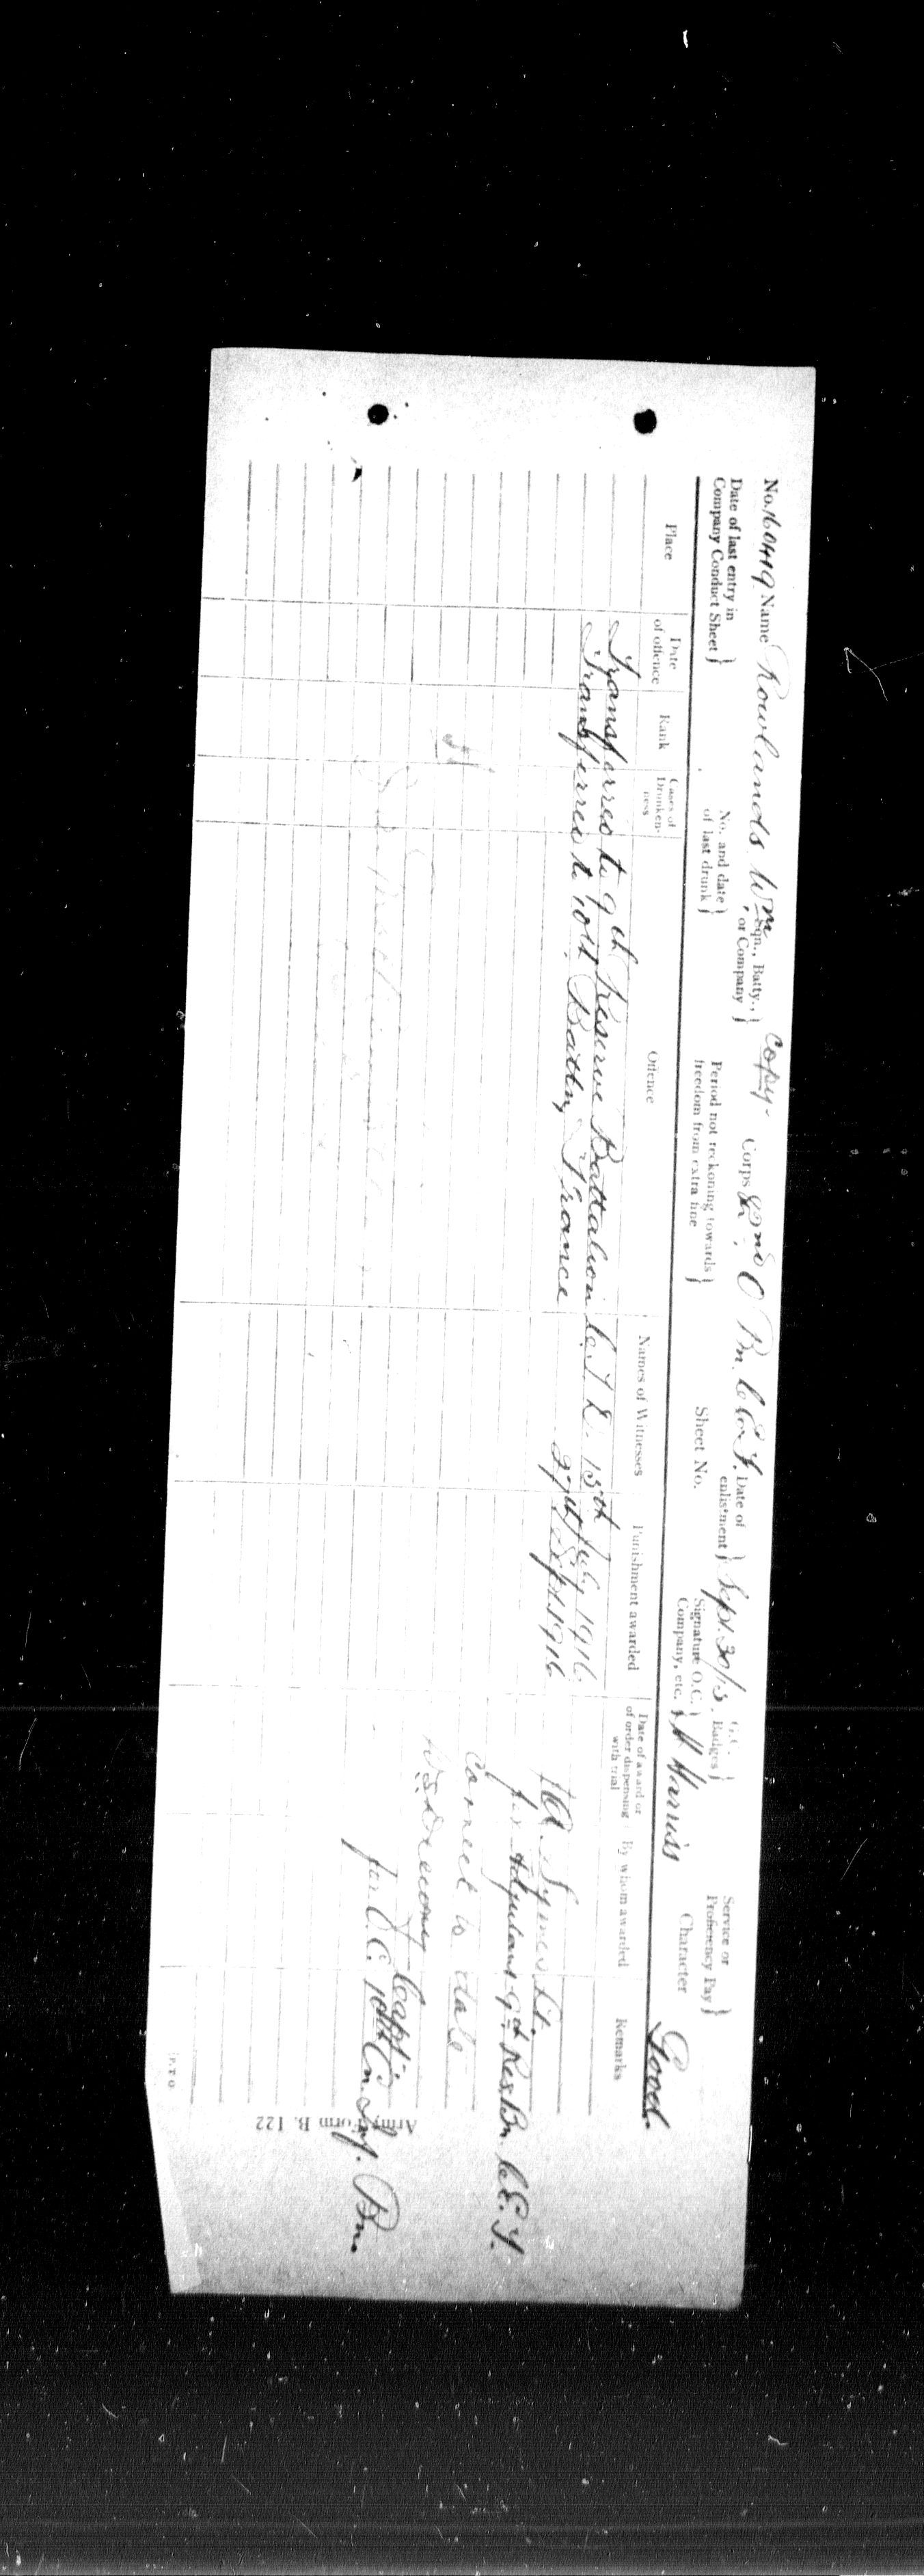 No. 160419 Name Rowlands Wm Sqn., Batty., or Company } Copy. Corps 82nd O Bn. C.E.F. Date of enlistment } Sept. 30/15. G.C. Badges } Service or Proficiency Pay }
Date of last entry in Company Conduct Sheet } No. and date of last drunk } Period not reckoning towards freedom from extra fine } Sheet No. Signature O.C. Company, etc. } Harriss Character Good.
Place Date of offence Rank Cases of Drunkenness Offence Names of Witnesses Punishment awarded Date of award or of order dispensing with trial By whom awarded Remarks
Transferred to 9th Reserve Battalion 15th July 1916
Transferred to 10th Battn, France 27th Sept 1916
Lt.
for Adjutant 9th Res. Bn. C.E.F.
Correct to date
Capt.
for O.C. 10th Cn. Inf. Bn.
Army Form B. 122
(P.T.O.